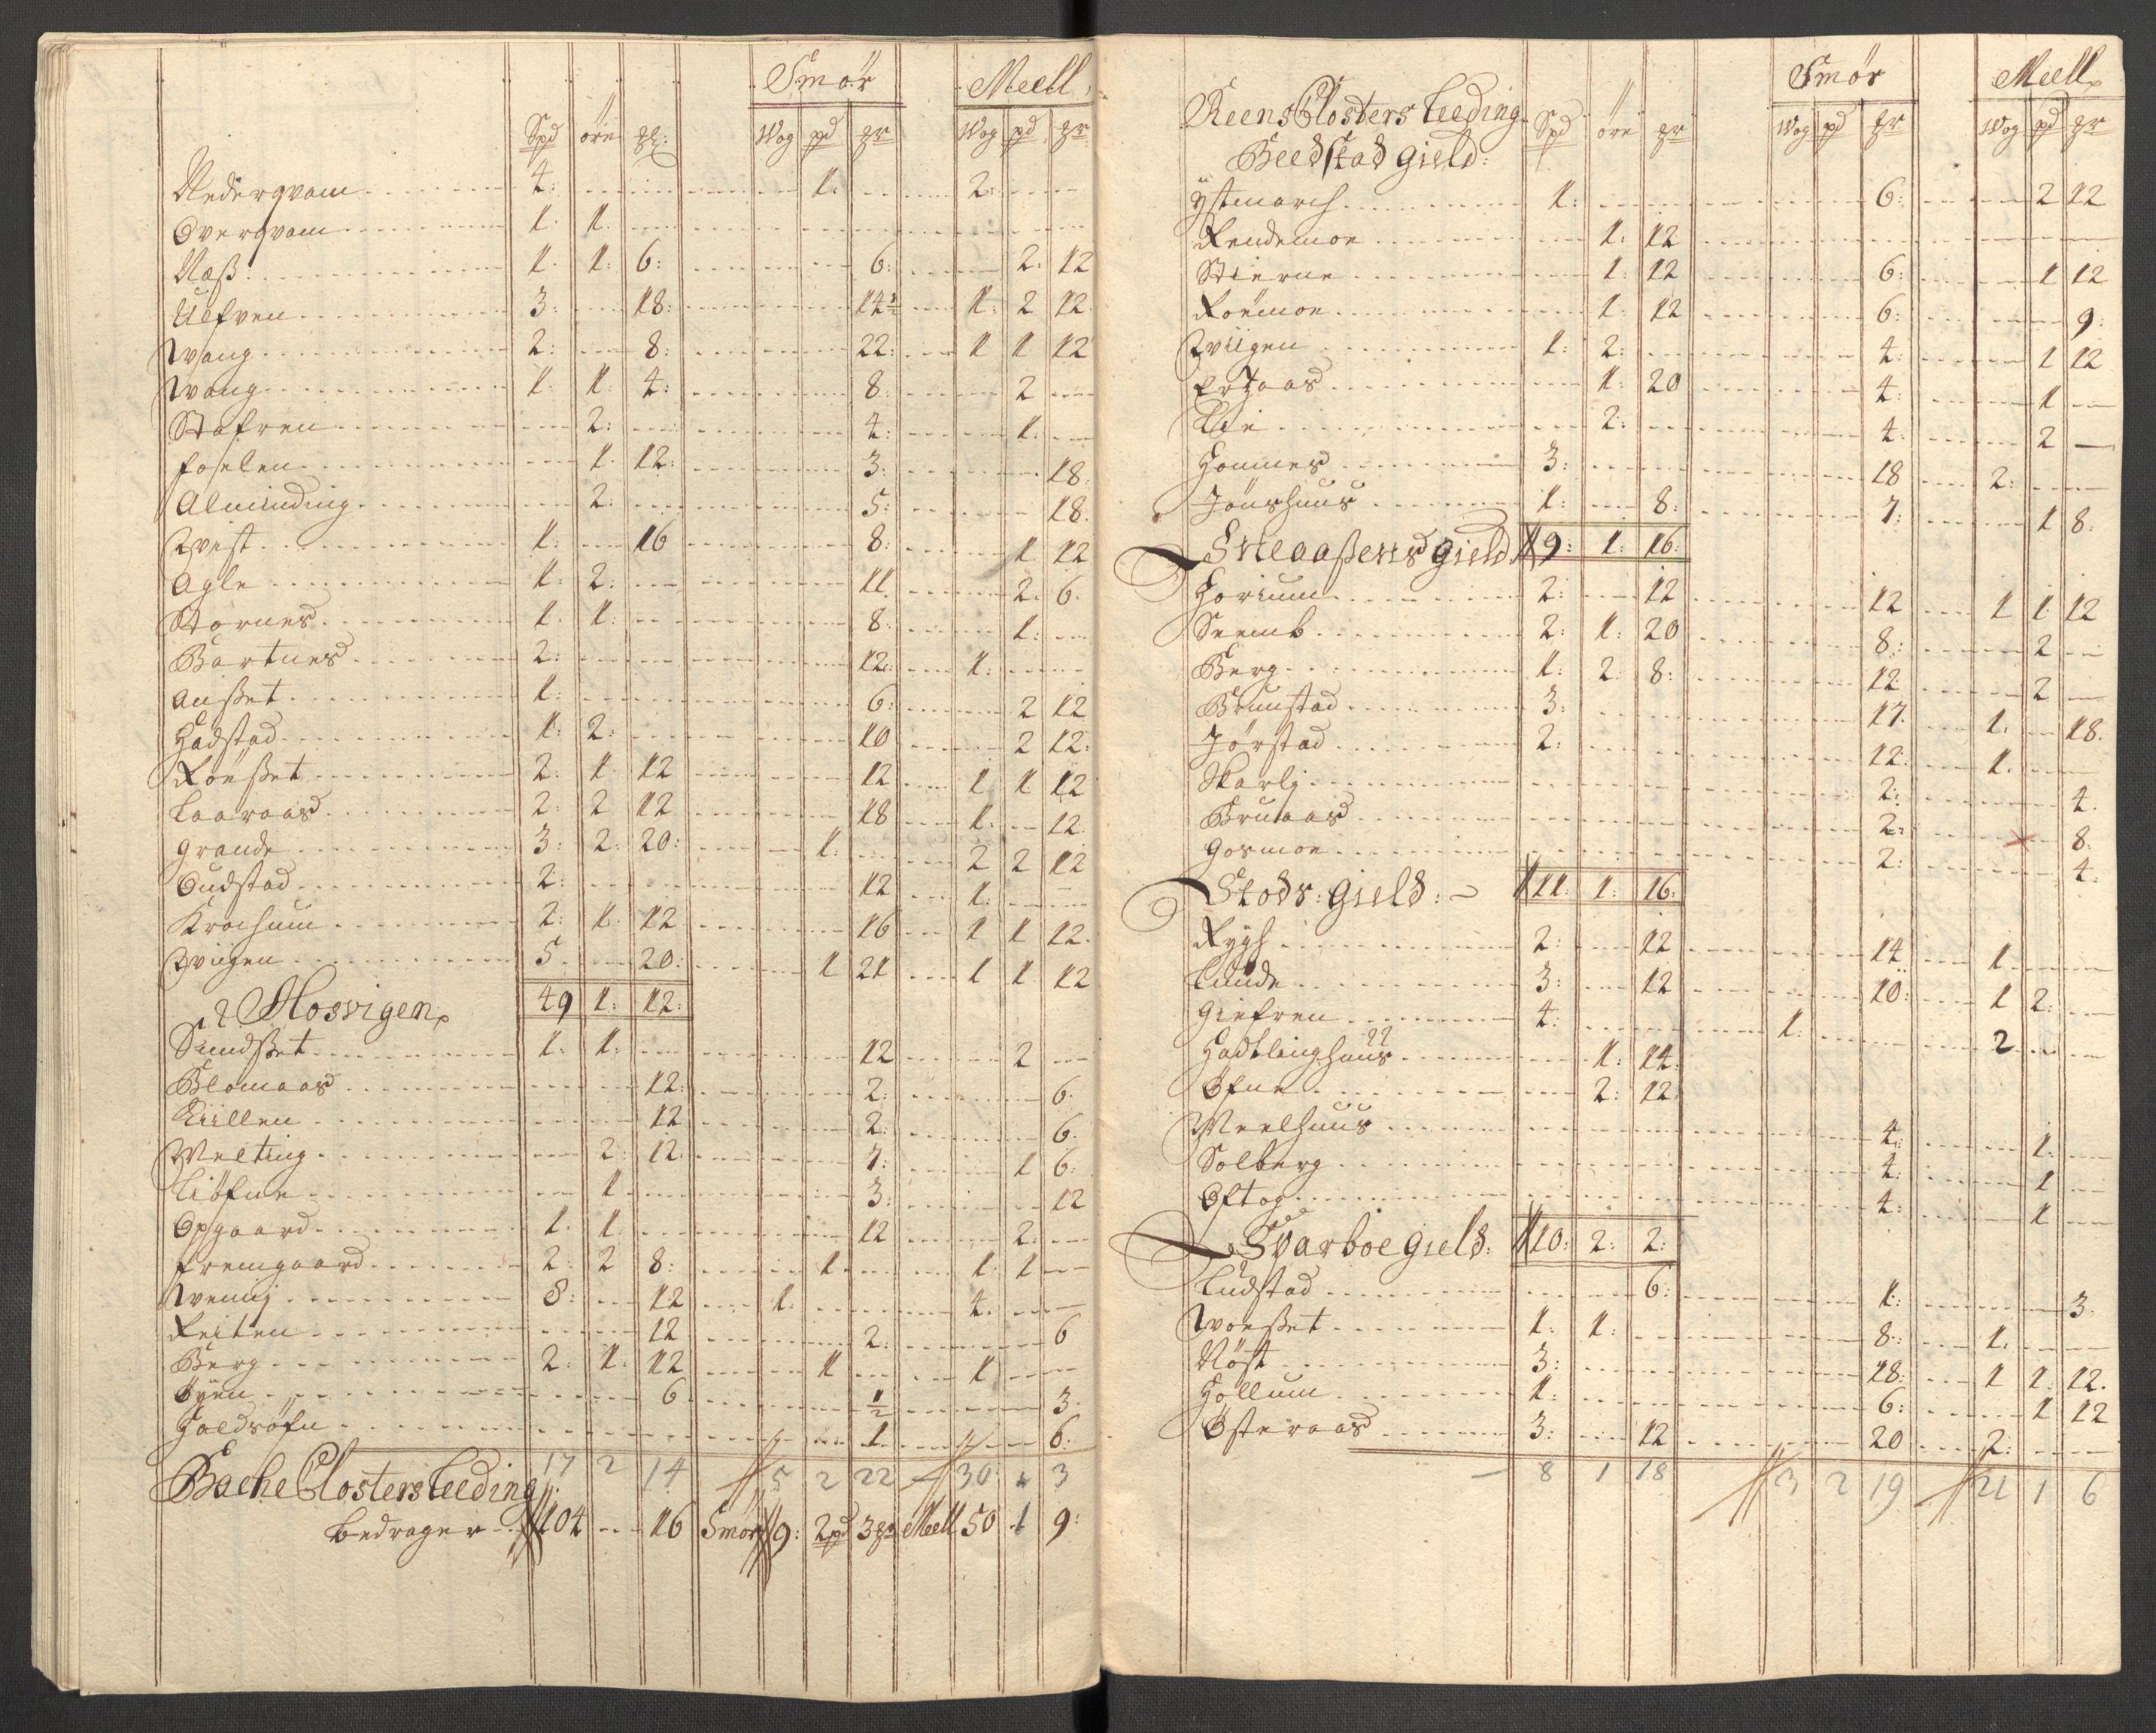 Smör Meell
Spd öre gl: Wog pd gr Wog pd gr
Nedergvam 4: 1: 2:
Overgvam 1. 1.
Næss 1. 1: 6: 6: 2: 12
Uefven 3: 18: 14½ 1: 2 12.
Wang 2: 8: 22: 1 1 12
Wang 1. 1. 4: 8. 2
Stafren 2: 4: 1.
foselen 1. 12: 3: 18.
Alminding 2: 5: 18.
Qvist 1: 16 8: 1 12
Agle 1: 2: 11. 2. 6.
Stornes 1. 1. 8: 1:
Bartnes 2: 12: 1:
Ausset 1: 6: 2 12
Hadstad 1: 2: 10 2 12:
Röesset 2: 1. 12 12 1 1 12
Laaraas 2: 2 12 18 1. 12.
grande 3: 2: 20: 1: 2 2 12
Oudstad 2: 12 1.
Krochum 2: 1. 12 16 1 1 12.
Qviigen 5. 20: 1 21 1 1 12
Mosvigen 49 1: 12:
Sundsset 1. 1: 12 2
Blomaas 12: 2: 6.
Kiillen 12 2: 6.
Welting 2: 12. 7: 1 6:
Liöfne 1. 3: 12
Opgaard 1. 1. 12 2.
fremgaard 2: 2 8: 1. 1. 1
Wennj 8: 12 1. 4.
Reiten 12 2: 6
Berg 2: 1. 12 1 1
Öyen 6. ½ 3.
Haldsöfn 1 6.
17 2 14 5 2 22 30 1 3
Bache Closters Leeding
bedrager 104 16 Smör 9: 2pd 3gr Meell 50 1 9:
Smör Meell
Reens Closters Leeding Spd öre gr Wog pd gr Wog pd gr
Beedstad gield:
Ÿstmarch 1: 6: 2 12
Rendemoe 1: 12
Stierne 1: 12 6: 1 12
Roëmoe 1: 12 6: 9:
Qviigen 1: 2: 4: 1 12
Ertzaas 1: 20 4: 1
Lie 2: 4: 2
Hommes 3: 18 2:
Jönshuus 1: 8: 7: 1 8.
Sneaassens gield 9: 1: 16:
Horium 2: 12 12 1 1. 12
Seemb 2: 1: 20 8: 2
Berg 1: 2: 8: 12 2
Brunstad 3: 17. 1. 18.
Jörstad 2: 12. 1.
Skarlj 2: 4.
Bruaas 2: 8.
gosmoe 2: 4:
Stods: gield: 11. 1: 16:
Rygh 2: 12 14 1.
Lunde 3: 12 10: 1 2:
giefren 4: 1. 2
Hadtlinghuus 1: 14:
Öfne 2: 12
Meelhuus 4: 1.
Solberg 4: 1
Oftog 4: 1
Svarboe gield: 10: 2: 2:
Ludstad 6: 1: 3.
Woesset 1: 1: 8: 1.
Nöst 3: 18: 1 1. 12.
Hollum 1: 6: 1 12
Österaas 3: 12 20 2:
8 1 18 3 2 19 21 1 6